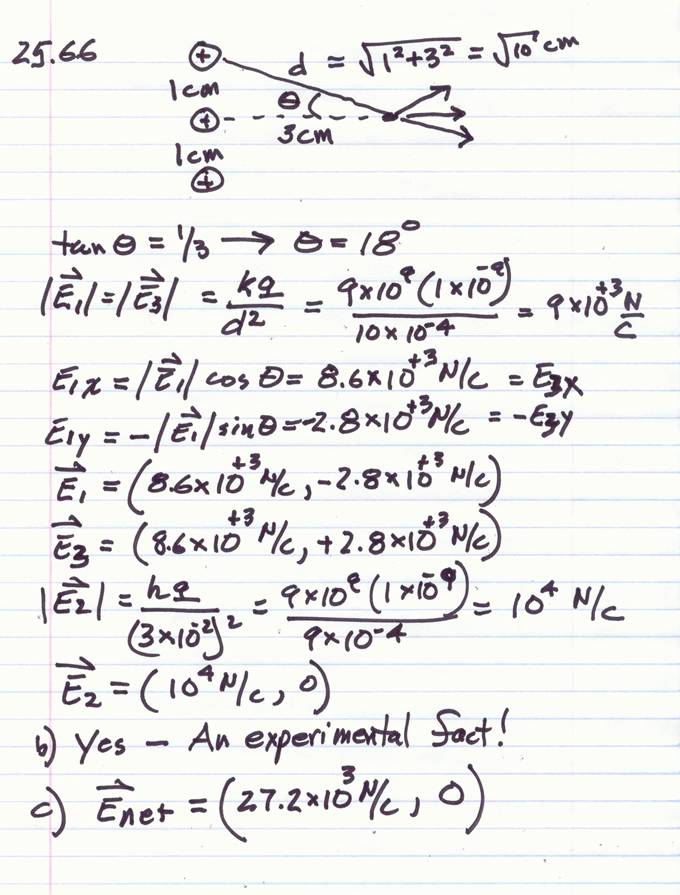 25.66
⊕ d = √1²+3² = √10 cm
1cm θ
⊕
3cm
1cm
⊕
tan θ = 1/3 → θ = 18°
|E⃗₁| = |E⃗₃| = kq/d² = 9x10⁹ (1x10⁻⁹)/10x10⁻⁴ = 9x10⁺³ N/C
E₁x = |E⃗₁| cos θ = 8.6x10⁺³ N/C = E₃x
E₁y = -|E⃗₁| sin θ = -2.8x10⁺³ N/C = -E₃y
E⃗₁ = (8.6x10⁺³ N/C, -2.8x10⁺³ N/C)
E⃗₃ = (8.6x10⁺³ N/C, +2.8x10⁺³ N/C)
|E⃗₂| = kq/(3x10⁻²)² = 9x10⁹ (1x10⁻⁹)/9x10⁻⁴ = 10⁴ N/C
E⃗₂ = (10⁴ N/C, 0)
b) Yes – An experimental fact!
c) E⃗net = (27.2x10³ N/C, 0)